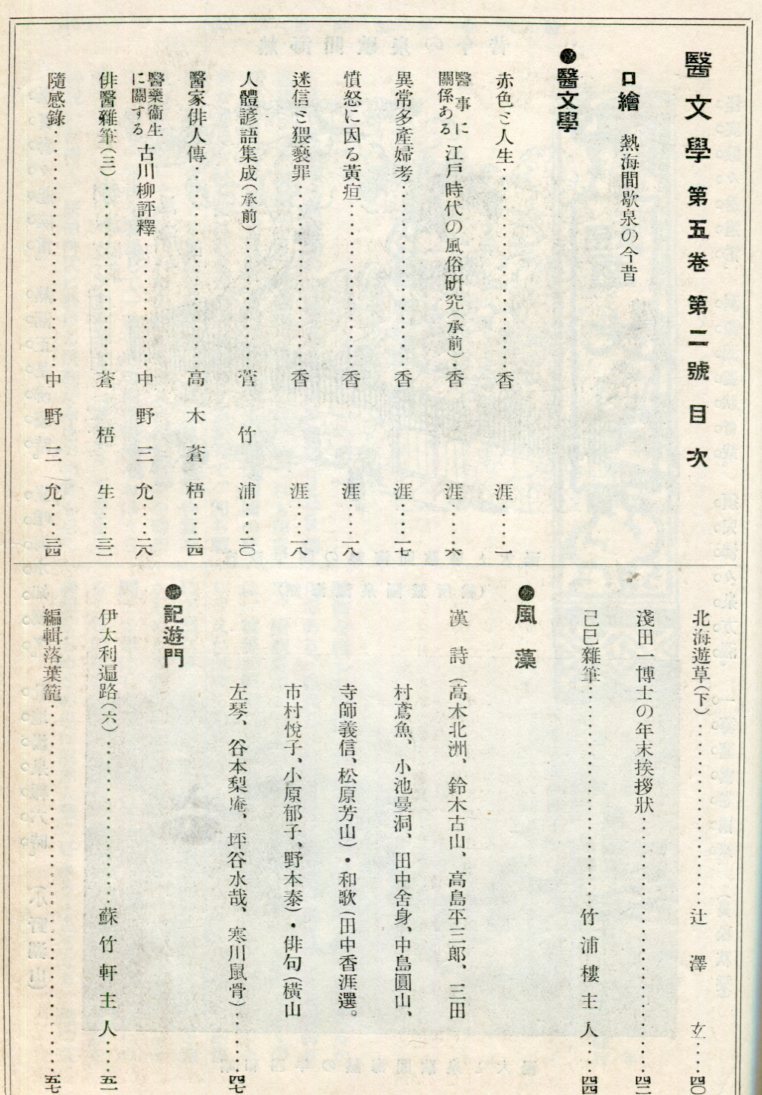 醫文學 第五卷 第二號 目次
口繪 熱海間歇泉の今昔
●醫文學
赤色と人生……………………香涯……一
醫事に關係ある 江戸時代の風俗研究(承前)・香涯……六
異常多產婦考……………………香涯……一七
憤怒に因る黃疸……………………香涯……一八
迷信と猥褻罪……………………香涯……一八
人體諺語集成(承前)……………………菅竹浦……二〇
醫家俳人傳……………………高木蒼梧……二四
醫藥衞生に關する 古川柳評釋……………………中野三允……二八
俳醫雜筆(三)……………………蒼梧生……三二
隨感錄……………………中野三允……三四
北海遊草(下)……………………辻澤玄……四〇
淺田一博士の年末挨拶狀……………………四二
己巳雜筆……………………竹浦樓主人……四四
●風藻
漢詩(高木北洲、鈴木古山、高島平三郎、三田
村鳶魚、小池曼洞、田中舍身、中島圓山、
寺師義信、松原芳山)・和歌(田中香涯選。
市村悅子、小原郁子、野本泰)・俳句(橫山
左琴、谷本梨庵、坪谷水哉、寒川鼠骨)……四七
●記遊門
伊太利遍路(六)……………………蘇竹軒主人……五一
編輯落葉籠……………………五七